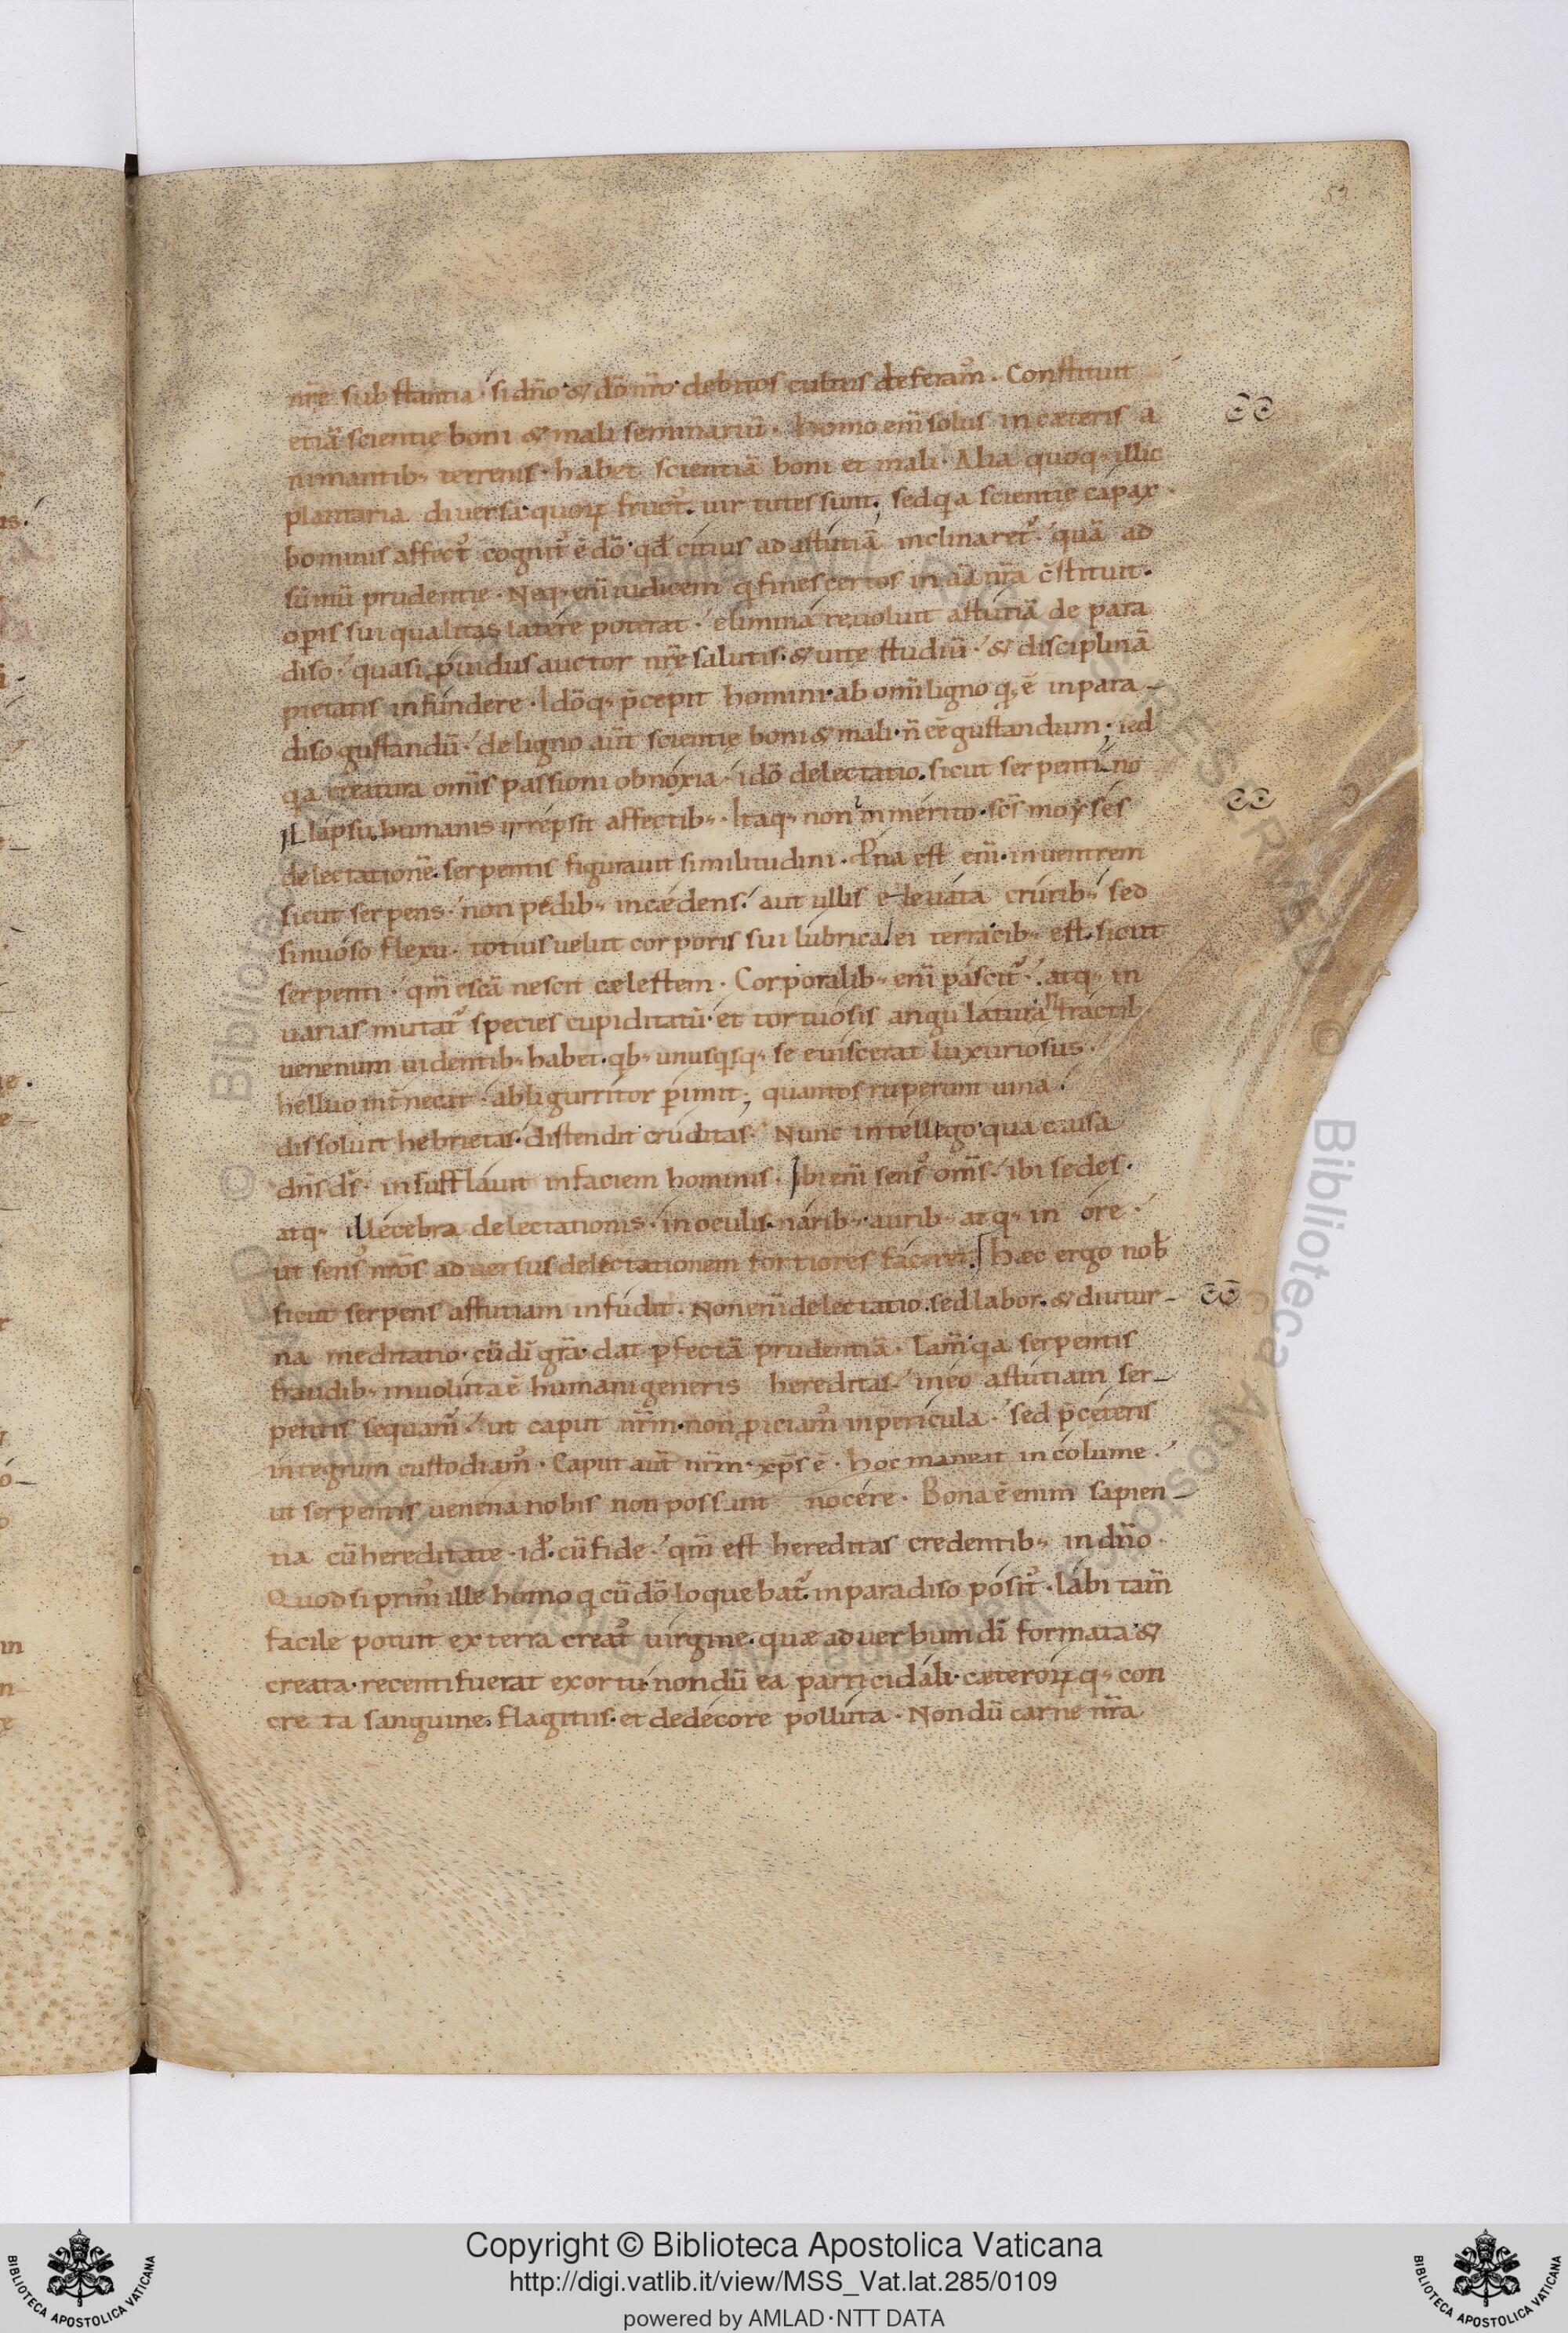 59
nr̄e substantia · si dn̄o · & dō nr̄o · debitos cultus deferam᾽ · Constituit
etiā scientię boni & mali seminariū · homo enī solus in cæteris a
nimantib; terrenis · habet scientiā boni et mali · Alia quoq; illic
plantaria diversa · quoꝝ fruct᾽ · uirtutes sunt ; sed qa scientię capax
hominis affect᾽ cognit᾽ ē dō · qđ citius ad astutiā inclinaret᾽ · quā ad
sūmū prudentie · Neq; enī iudicem q fines certos in aīa nr̄a c̄stituit ·
opis sui qualitas latere poterat · elimina re uoluit astutiā de para
diso · quasi ꝓuidus auctor nr̄e salutis · & uite studiū · & disciplinā
pietatis infundere · Idōq; p̄cepit homini · ab omī ligno q ē in para-
diso gustandū · de ligno aūt scientię boni & mali · n̄ eē gustandum ; sed
qa creatura omīs passioni obnoxia · idō delectatio · sicut serpentino
illapsu humanis irrepsit affectib; · Itaq; non inmerito · scs̄ moyses
delectationē · serpentis figurauit similitudini · Prna est enī · in uentrem
sicut serpens · non pedib; incædens · aut ullis eleuata crurib; sed
sinuoso flexu · totius uelut corporis sui lubrica · ei terra cib; est · sicut
serpenti · qm̄ escā nescit cælestem · Corporalib; enī pascit᾽ · atq; in
uarias mutat᾽ species cupiditatū · et tortuosis angulatura n fractib;
uenenum in dentib; habet · qb; unusqsq; se euiscerat luxuriosus ·
helluo int̄necat · abligurritor pimit ; quantos ruperunt uina ·
dissoluit hebrietas · distendit cruditas · Nunc intellego qua causa
dn̄s ds̄ · insufflauit in faciem hominis · Ibi enī sens᾽ omīs · ibi sedes ·
atq; illecebra delectationis · in oculis · narib; · aurib; atq; in ore ·
ut sens᾽ nr̄os aduersus delectationem fortiores faceret · hæc ergo nob̄
sicut serpens astutiam infudit · Non enī delectatio · sed labor · & diutur-
na meditatio · cū dī gr̄a · dat pfectā prudentiā · Tam̄ qa serpentis
fraudib; inuoluta ē humani generis hereditas · in eo astutiam ser-
pentis sequam᾽ · ut caput nr̄m · non ꝓiciam᾽ in pericula · sed p̄ ceteris
integrum custodiam᾽ · Caput aūt nr̄m · xps̄ ē · hoc maneat incolume ·
ut serpentis uenena nobis non possunt nocere · Bona ē enim sapien-
tia cū hereditate · id · cū fide · qm̄ est hereditas credentib; in dn̄o ·
Quod si prim᾽ ille homo q cū dō loquebat᾽ · in paradiso posit᾽ · labi tam̄
facile potuit ex terra creat᾽ uirgine · quæ ad uerbum dī formata · &
creata · recenti fuerat exortu · nondū ea parricidali · cæteroꝝq; con
creta sanguine · flagitiis · et dedecore polluta · Nondū carne nr̄a
Copyright © Biblioteca Apostolica Vaticana
http://digi.vatlib.it/view/MSS_Vat.lat.285/0109
powered by AMLAD·NTT DATA
BIBLIOTECA APOSTOLICA VATICANA
BIBLIOTECA APOSTOLICA VATICANA